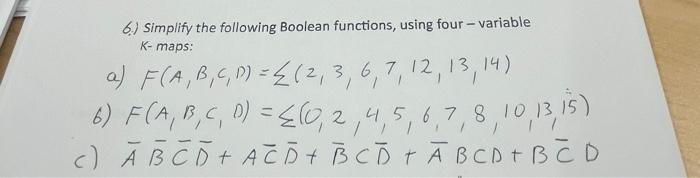 6.) Simplify the following Boolean functions, using four – variable
K- maps:
a) F(A,B,C,D) = Σ(2,3,6,7,12,13,14)
b) F(A,B,C,D) = Σ(0,2,4,5,6,7,8,10,13,15)
c) A̅ B̅ C̅ D̅ + A C̅ D̅ + B̅ C D̅ + A̅ B C D + B C̅ D